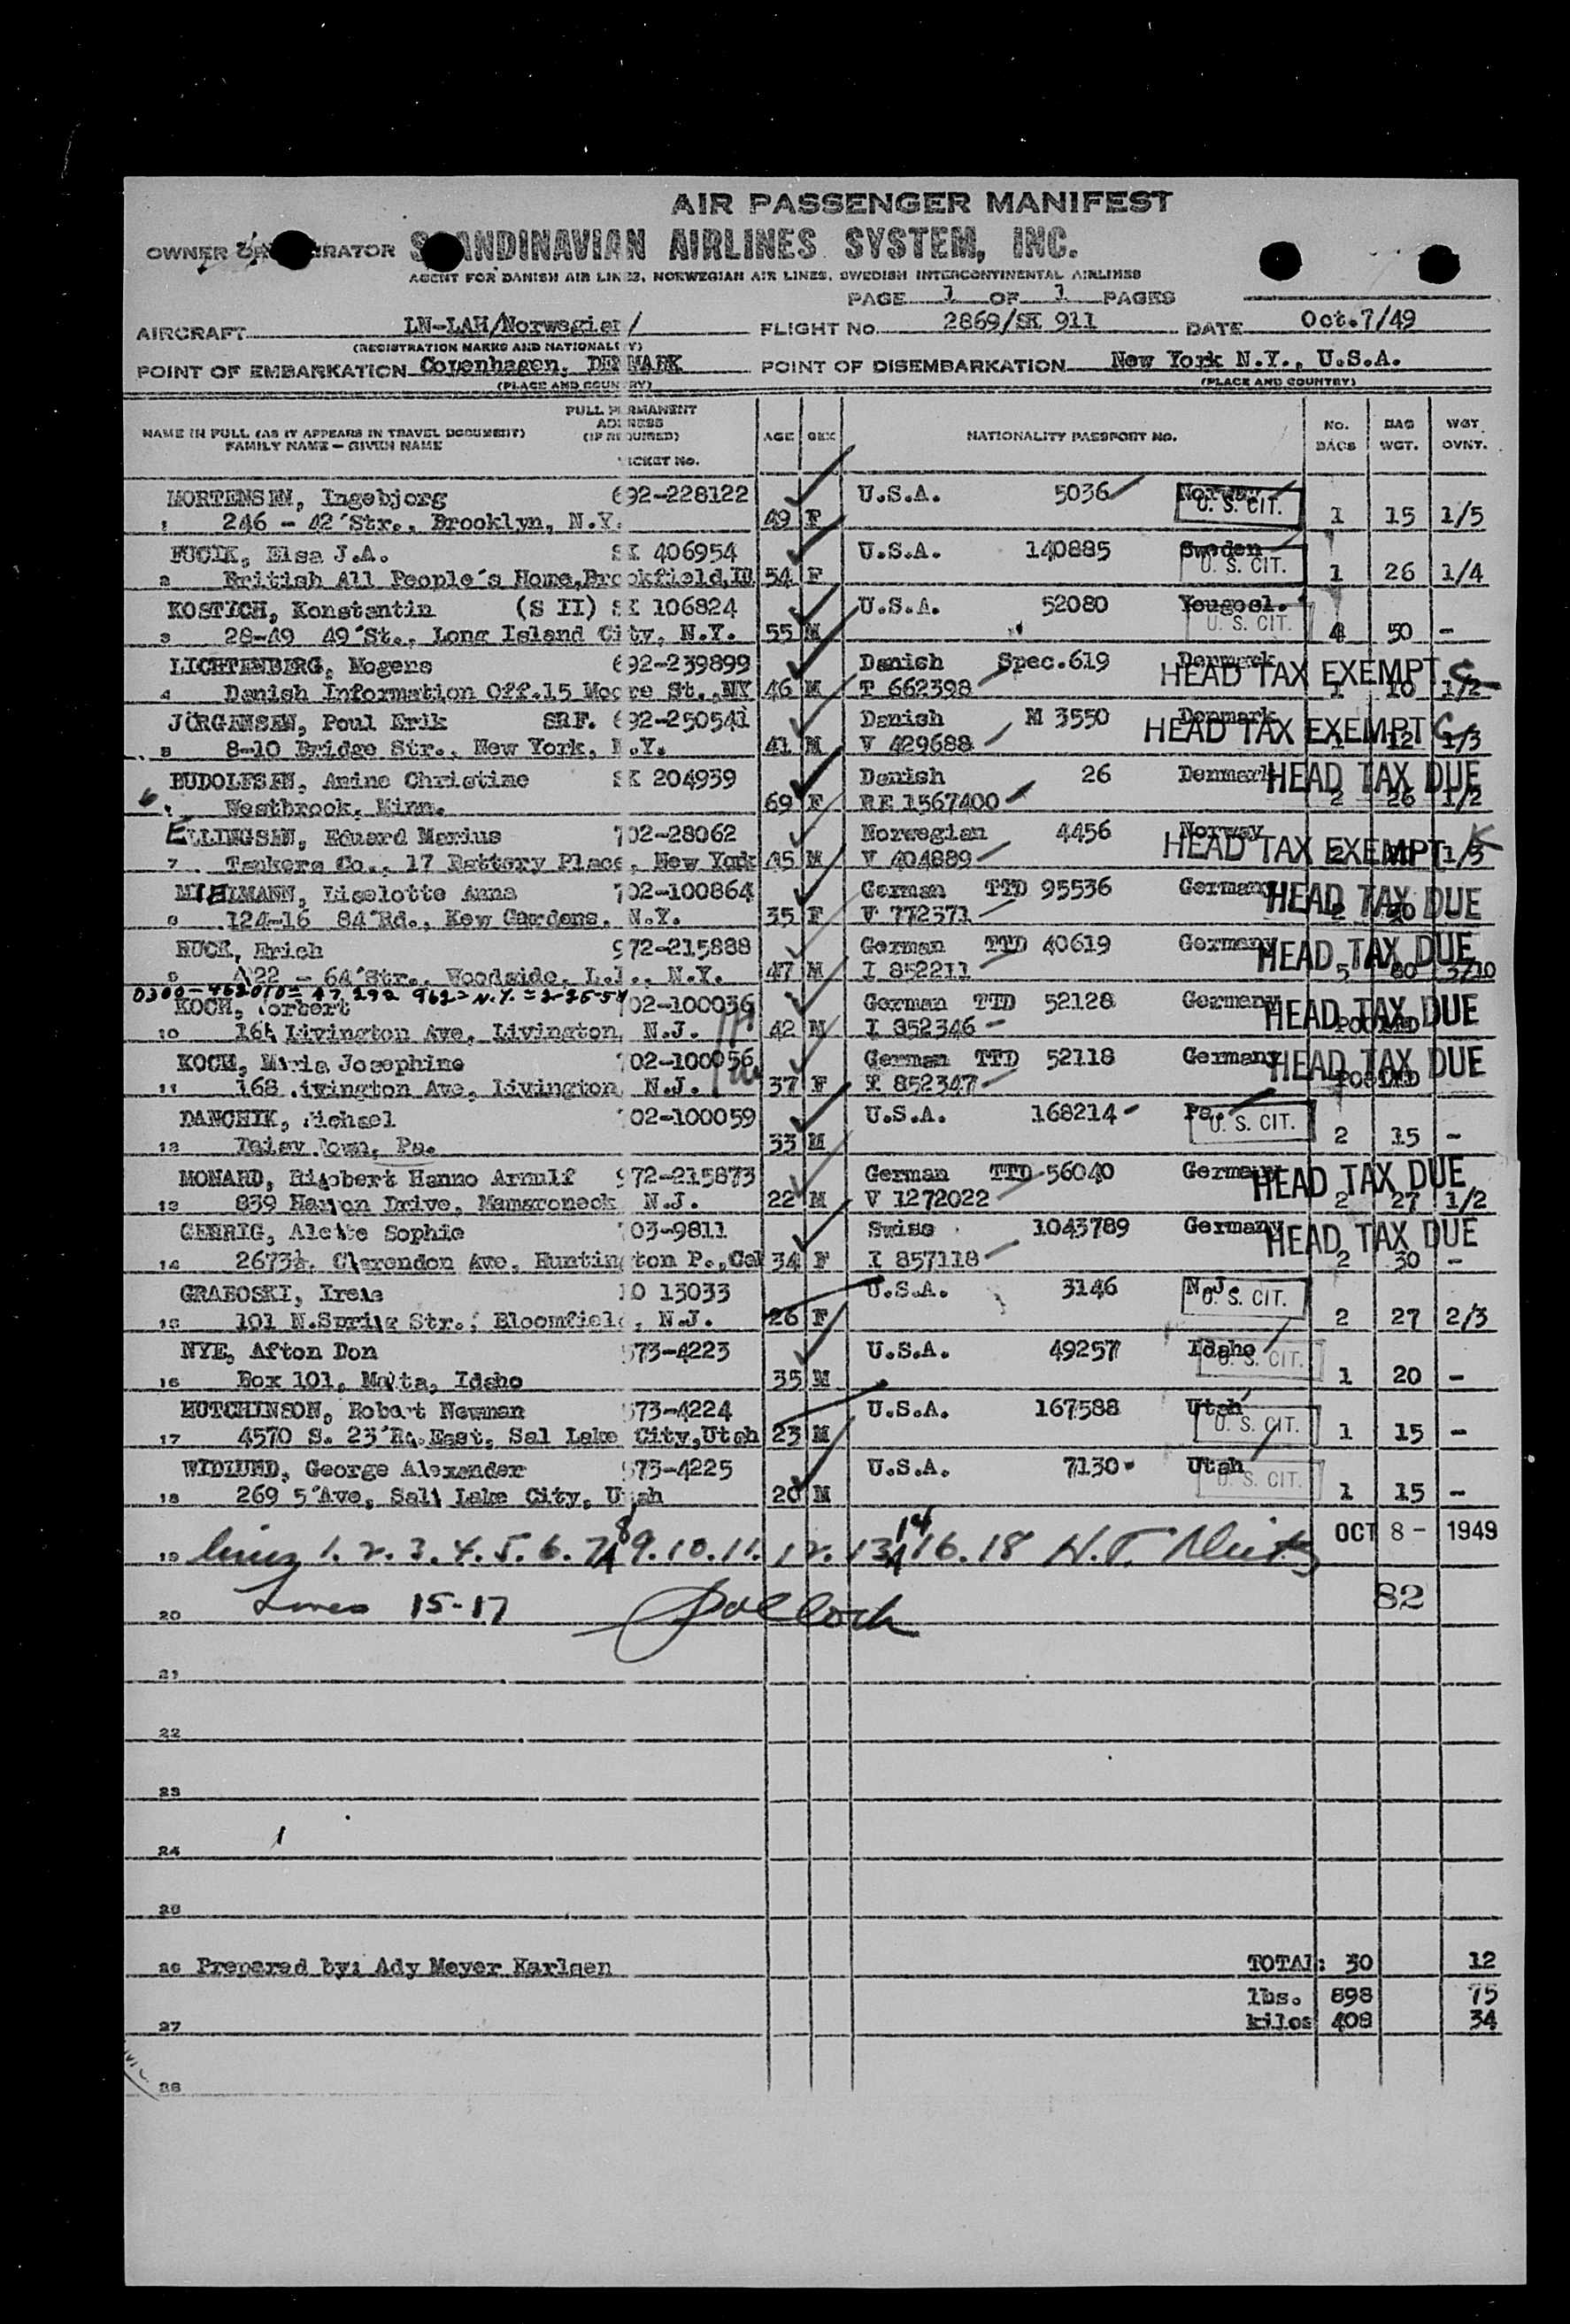 AIR PASSENGER MANIFEST
OWNER OR OPERATOR SCANDINAVIAN AIRLINES SYSTEM, INC.
AGENT FOR DANISH AIR LINES, NORWEGIAN AIR LINES, SWEDISH INTERCONTINENTAL AIRLINES
PAGE 1 OF 1 PAGES
AIRCRAFT LN-LAH/Norwegian/ FLIGHT No. 2869/SK 911 DATE Oct.7/49
(REGISTRATION MARKS AND NATIONALITY)
POINT OF EMBARKATION Copenhagen, DENMARK POINT OF DISEMBARKATION New York N.Y., U.S.A.
(PLACE AND COUNTRY) (PLACE AND COUNTRY)
NAME IN FULL (AS IT APPEARS IN TRAVEL DOCUMENT) FAMILY NAME — GIVEN NAME FULL PERMANENT ADDRESS (IF REQUIRED) TICKET No. AGE SEX NATIONALITY PASSPORT No. No. BAGS BAG WGT. WGT OVNT.
MORTENSEN, Ingebjorg 692-228122 U.S.A. 5036 Norway U. S. CIT.
1 246 - 42´Str., Brooklyn, N.Y. 49 F 1 15 1/5
FUCIK, Elsa J.A. SK 406954 U.S.A. 140885 Sweden U. S. CIT.
2 British All People´s Home, Brookfield, Ill 54 F 1 26 1/4
KOSTICH, Konstantin (S II) SK 106824 U.S.A. 52080 Yougosl. U. S. CIT.
3 28-49 49´St., Long Island City, N.Y. 55 M 4 50 -
LICHTENBERG, Mogens 692-239899 Danish Spec.619 Denmark HEAD TAX EXEMPT
4 Danish Information Off.15 Moore St., NY 46 M T 662398 1 10 1/2
JÖRGENSEN, Poul Erik SRF. 692-250541 Danish M 3550 Denmark HEAD TAX EXEMPT
5 8-10 Bridge Str., New York, N.Y. 41 M V 429688 1 12 1/3
BUDOLFSEN, Anine Christine SK 204939 Danish 26 Denmark HEAD TAX DUE
6 Westbrook, Minn. 69 F RE 1567400 2 26 1/2
ELLINGSEN, Eduard Marius 702-28062 Norwegian 4456 Norway HEAD TAX EXEMPT
7 Tankers Co., 17 Battery Place, New York 45 M V 404889 2 1/3
MIHLMANN, Liselotte Anna 702-100864 German TTD 95536 Germany HEAD TAX DUE
8 124-16 84´Rd., Kew Gardens, N.Y. 35 F V 772371 2
BUCK, Erich 972-215888 German TTD 40619 Germany HEAD TAX DUE
9 A22 - 64´Str., Woodside, L.I., N.Y. 47 M I 852211 5 80 3/10
KOCH, Norbert 702-100056 German TTD 52128 Germany HEAD TAX DUE
10 168 Livington Ave, Livington, N.J. 42 M I 852346 POOLED
KOCH, Maria Josephine 702-100056 German TTD 52118 Germany HEAD TAX DUE
11 168 Livington Ave, Livington, N.J. 37 F I 852347 POOLED
DANCHIK, Michael 702-100059 U.S.A. 168214 Pa. U. S. CIT.
12 Daisy Town, Pa. 33 M 2 15 -
MONARD, Rigobert Hanno Arnulf 972-215873 German TTD 56040 Germany HEAD TAX DUE
13 839 Drive, Mamaroneck N.J. 22 M V 1272022 2 27 1/2
GEHRIG, Alette Sophie 703-9811 Swiss 1043789 Germany HEAD TAX DUE
14 2673½ Clarendon Ave, Huntington P., Cal 34 F I 857118 2 30 -
GRABOSKI, Irene 13033 U.S.A. 3146 N.J. U. S. CIT.
15 101 N.Spring Str., Bloomfield, N.J. 26 F 2 27 2/3
NYE, Afton Don 573-4223 U.S.A. 49257 Idaho U. S. CIT.
16 Box 101, Malta, Idaho 35 M 1 20 -
HUTCHINSON, Robert Newman 573-4224 U.S.A. 167588 Utah U. S. CIT.
17 4570 S. 23´Rd.East, Sal Lake City, Utah 23 M 1 15 -
WIDLUND, George Alexander 573-4225 U.S.A. 7130 Utah U. S. CIT.
18 269 5´Ave, Salt Lake City, Utah 20 M 1 15 -
19 lines 1. 2. 3. 4. 5. 6. 7 8 9. 10. 11. 12. 13 14 16. 18 OCT 8 - 1949
20 Lines 15-17 82
21
22
23
24
25
26 Prepared by: Ady Meyer Karlsen TOTAL: 30 12
lbs. 898 75
27 kilos 408 34
28